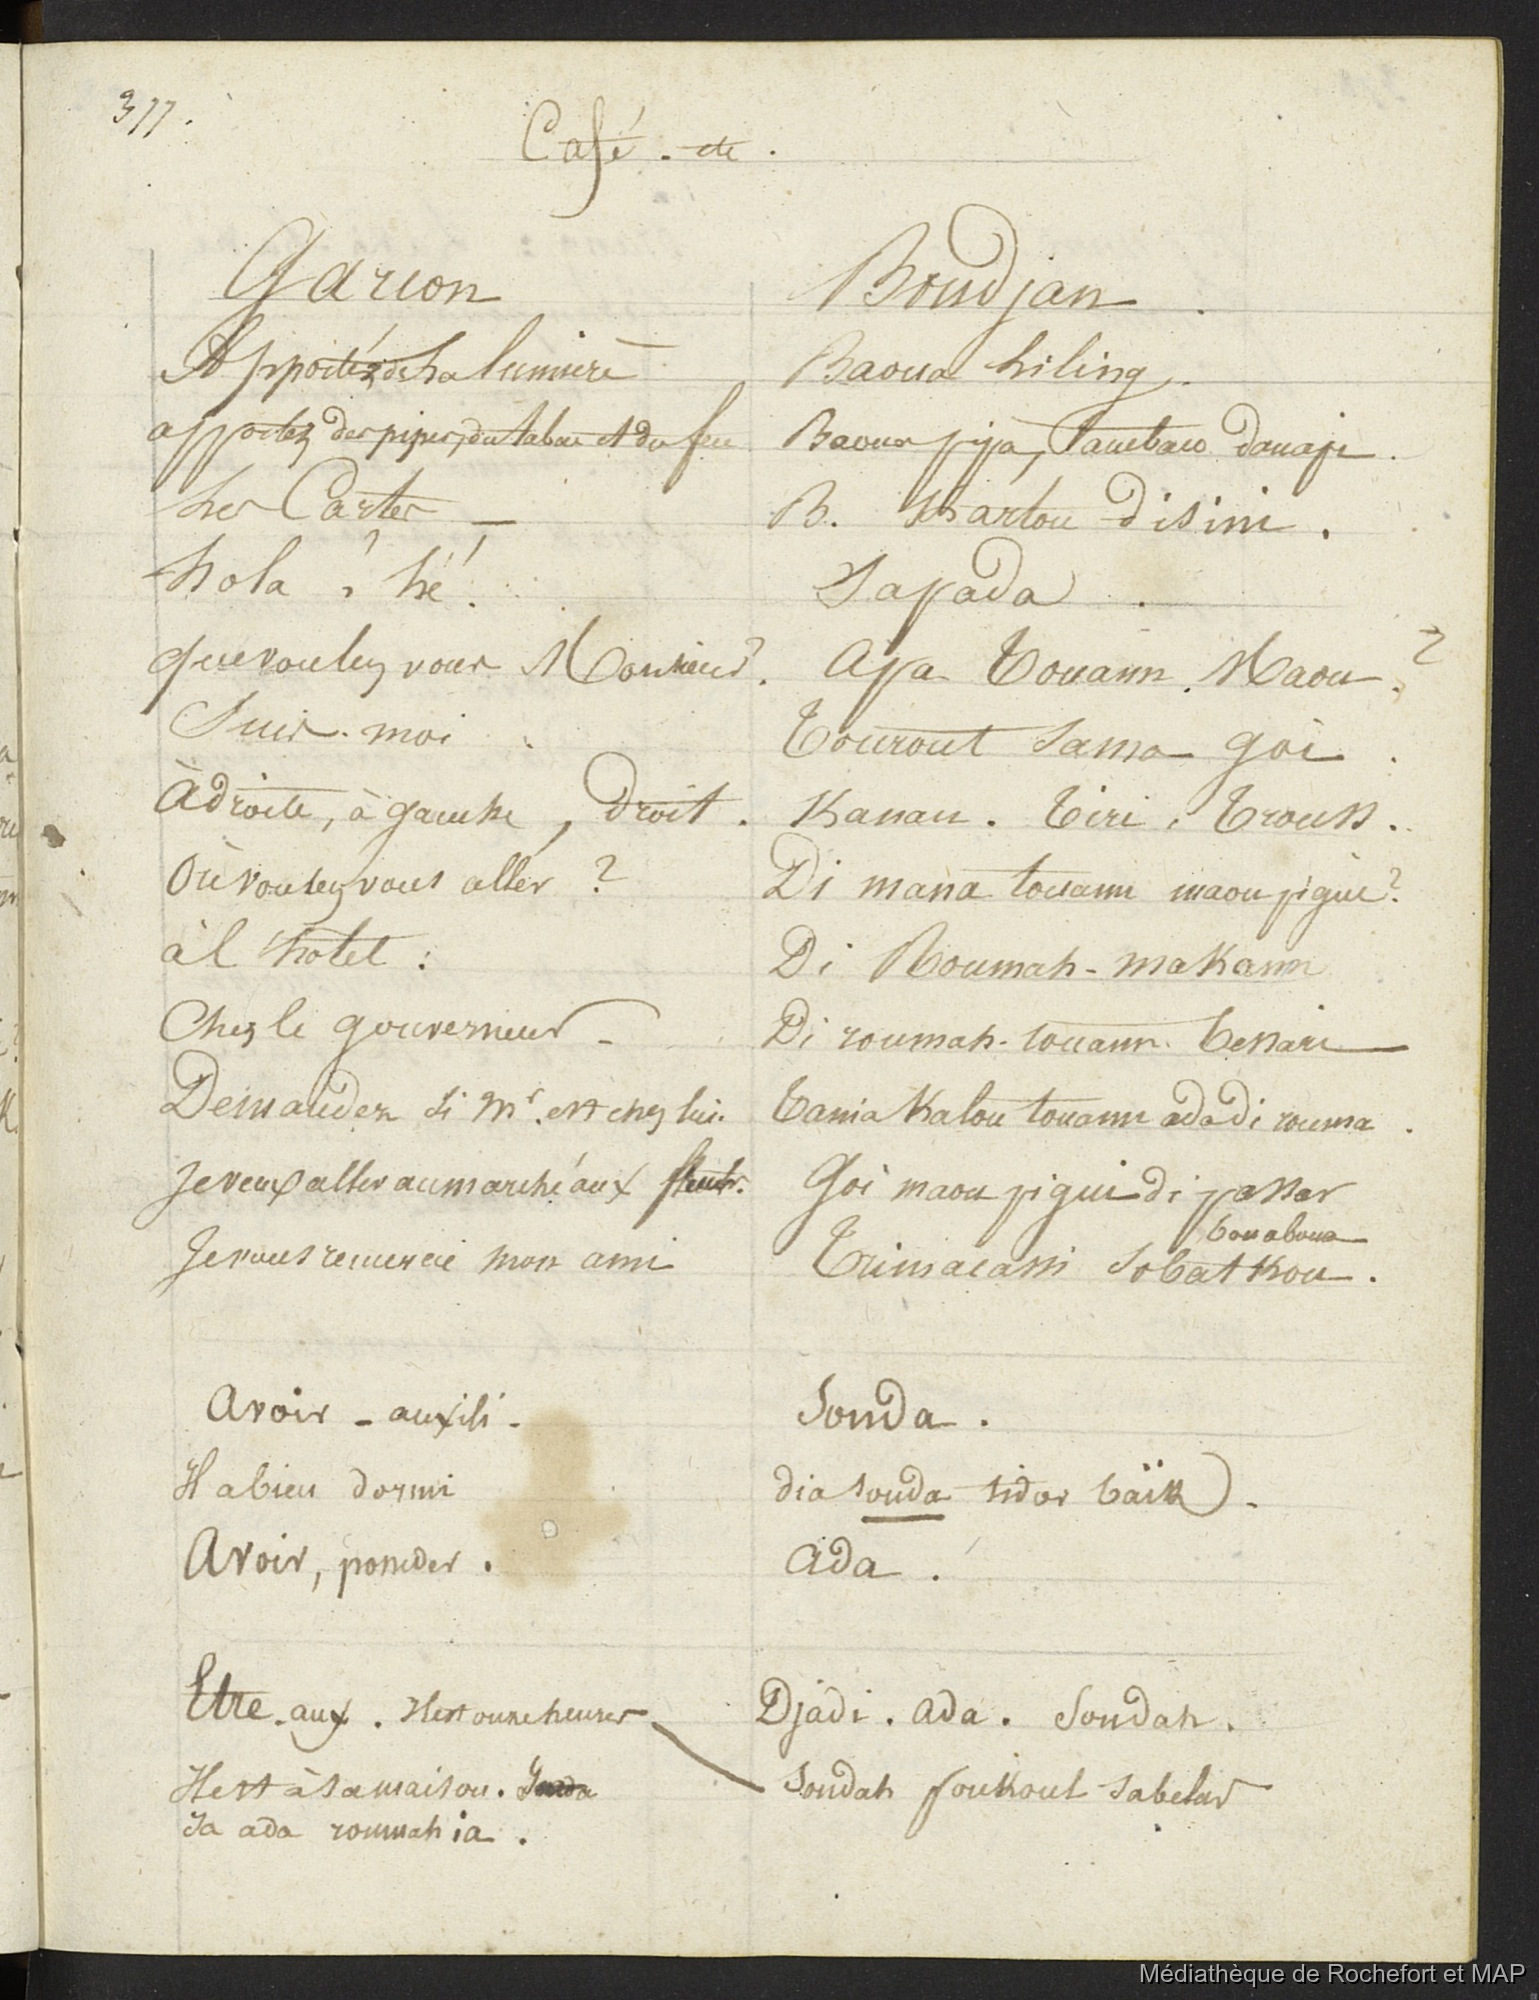 377.
Café. etc.
Garçon Boudjan.
Apportéz de la lumière Baoua liling.
apportez des pipes, du tabac et du feu Baoua pipa, Tambaco donapi.
Les Cartes _ B. Kartou disini.
hola! hé! Sapada.
que voulez vous Monsieur? Apa Touann Maou?
Suis-moi. Tourout sama goi.
à droite, à gauche, droit. Kanan. Kiri, trouss.
Où voulez vous aller? Di mana touann maou pigui?
à l'hotel. Di Roumah-makann
Chez le gouverneur _ Di roumah-touann. bessari
Demandez si Mr. est chez lui. Tania kalou touann ada di rouma.
Je veux aller au marché aux fleurs. Goi maou pigui di passar
bouaboua
Je vous remercie mon ami Trimacassi Sobat kou.
Avoir - auxili. Souda.
Il a bien dormi dia souda tidor baïk.
Avoir, posséder. Ada.
Etre - aux. Il est onze heures Djadi. ada. Soudah.
Il est à sa maison. Soudah poukoul sabelas
Ia ada roumah ia.
Médiathèque de Rochefort et MAP